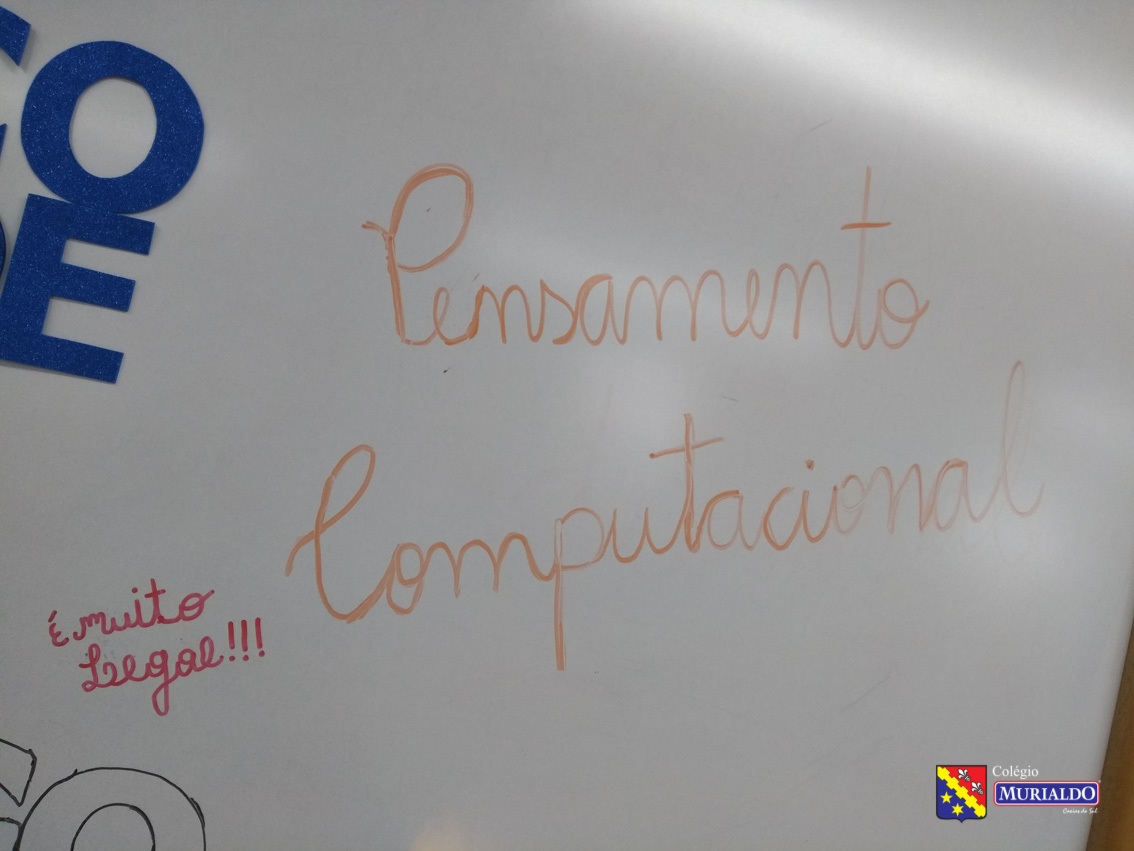 CO
DE
Pensamento
Computacional
É muito
Legal!!!
CO
Colégio
MURIALDO
Caxias do Sul